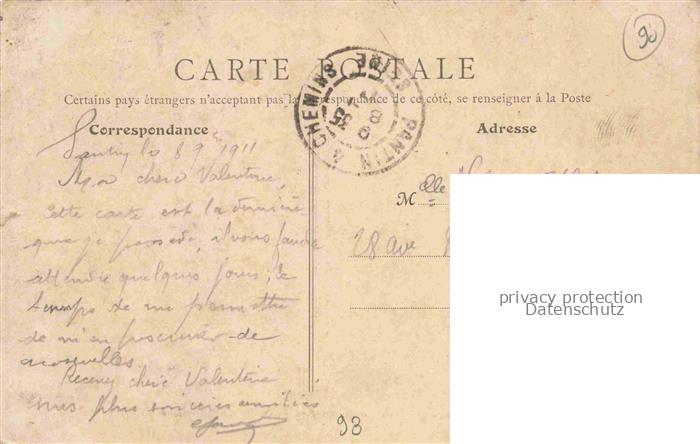 90
CARTE POSTALE
Certains pays étrangers n'acceptant pas la correspondance de ce côté, se renseigner à la Poste
Correspondance
Adresse
PANTIN 4 CHEMINS SEINE
Pantin le 8 9 1911
Ma chère Valentine,
Cette carte est la dernière
que je possède, il vous faudra
attendre quelques jours, le
temps de me permettre
de m'en procurer de
nouvelles.
Recevez chère Valentine
mes plus sincères amitiés
M elle
28 Ave
privacy protection
Datenschutz
93